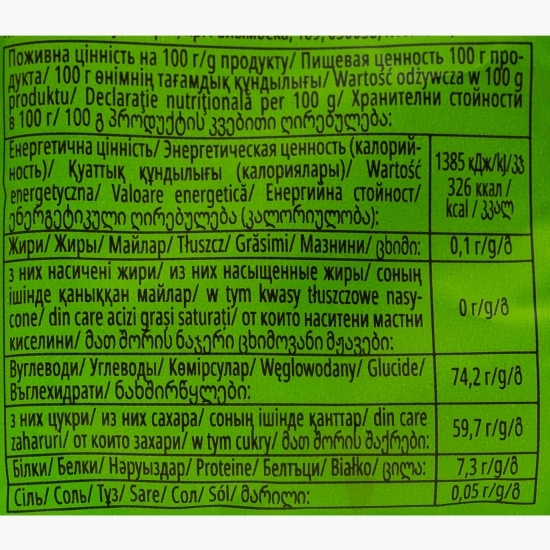 Поживна цінність на 100 г/g продукту/ Пищевая ценность 100 г про-
дукта/ 100 г өнімнің тағамдық құндылығы/ Wartość odżywcza w 100 g
produktu/ Declarație nutrițională per 100 g/ Хранителни стойности
в 100 г/ 100 გ პროდუქტის კვებითი ღირებულება:
Енергетична цінність/ Энергетическая ценность (калорий-
ность)/ Қуаттық құндылығы (калориялары)/ Wartość
energetyczna/ Valoare energetică/ Енергийна стойност/
ენერგეტიკული ღირებულება (კალორიულობა):
1385 кДж/kJ/კჯ
326 ккал /
kcal / კკალ
Жири/ Жиры/ Майлар/ Tłuszcz/ Grăsimi/ Мазнини/ ცხიმი: 0,1 г/g/გ
з них насичені жири/ из них насыщенные жиры/ соның
ішінде қаныққан майлар/ w tym kwasy tłuszczowe nasy-
cone/ din care acizi grași saturați/ от които наситени мастни
киселини/ მათ შორის ნაჯერი ცხიმოვანი მჟავები:
0 г/g/გ
Вуглеводи/ Углеводы/ Көмірсулар/ Węglowodany/ Glucide/
Въглехидрати/ ნახშირწყლები:
74,2 г/g/გ
з них цукри/ из них сахара/ соның ішінде қанттар/ din care
zaharuri/ от които захари/ w tym cukry/ მათ შორის შაქრები:
59,7 г/g/გ
Білки/ Белки/ Нәруыздар/ Proteine/ Белтъци/ Białko/ ცილა: 7,3 г/g/გ
Сіль/ Соль/ Тұз/ Sare/ Сол/ Sól/ მარილი: 0,05 г/g/გ